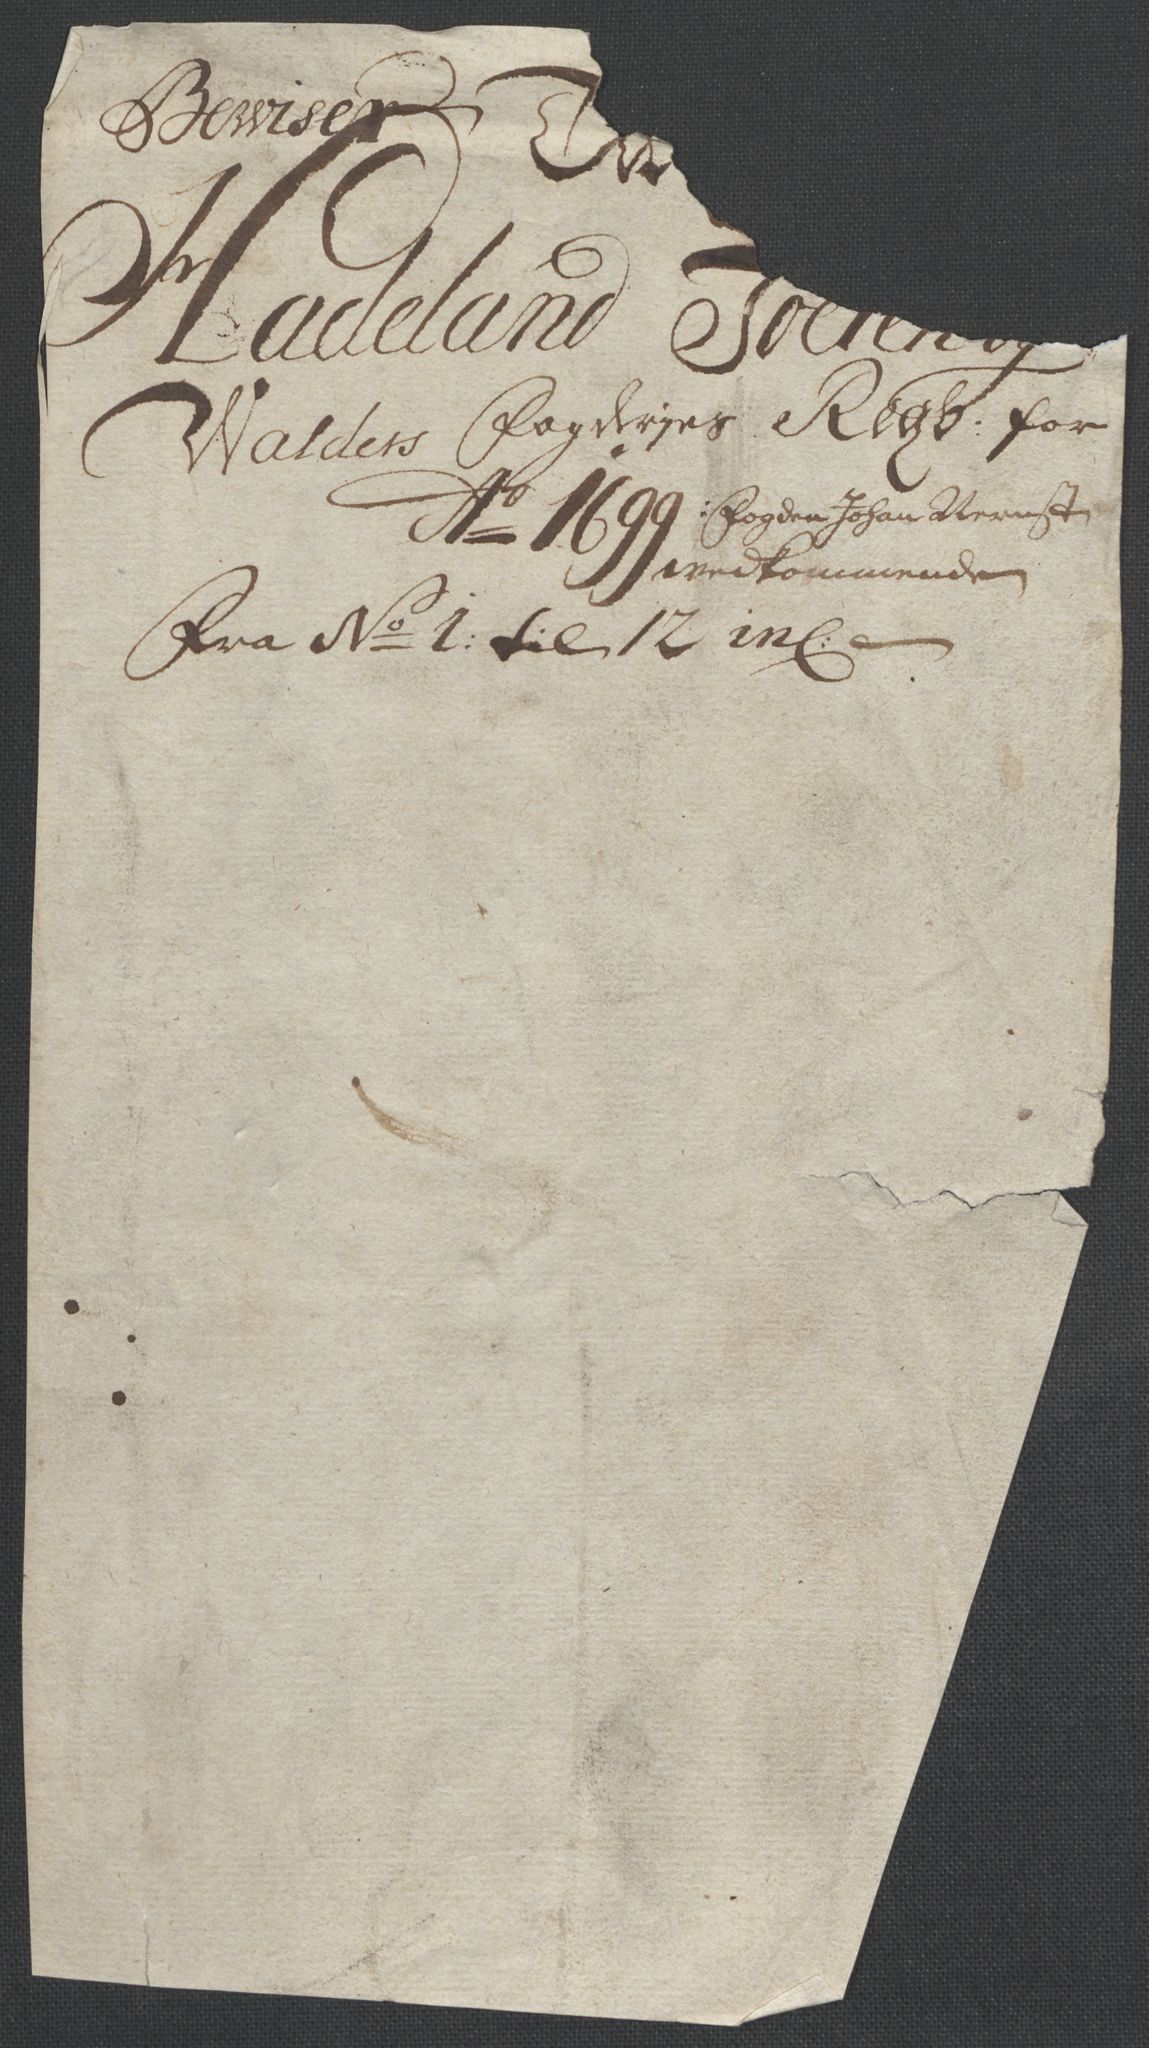 Bewiser
Hadeland Toten og
Walders Fogderjes Regb: for
Ao 1699 Fogden Johan Nernst
wedkommende
Fra No 1: til 12 inc: